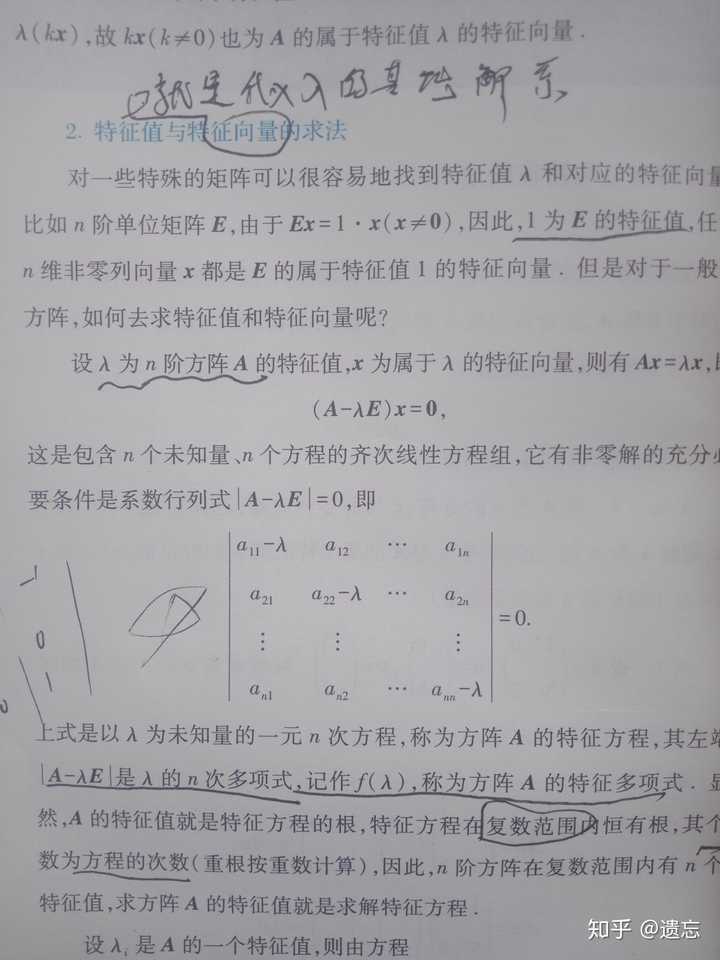 λ(kx),故kx(k≠0)也为A的属于特征值λ的特征向量.
就是代入λ的基础解系
2. 特征值与特征向量的求法
对一些特殊的矩阵可以很容易地找到特征值λ和对应的特征向量
比如n阶单位矩阵E,由于Ex=1·x(x≠0),因此,1为E的特征值,任
n维非零列向量x都是E的属于特征值1的特征向量.但是对于一般
方阵,如何去求特征值和特征向量呢?
设λ为n阶方阵A的特征值,x为属于λ的特征向量,则有Ax=λx,
(A-λE)x=0,
这是包含n个未知量、n个方程的齐次线性方程组,它有非零解的充分必
要条件是系数行列式|A-λE|=0,即
a₁₁-λ a₁₂ ⋯ a₁ₙ
a₂₁ a₂₂-λ ⋯ a₂ₙ
⋮ ⋮ ⋮
=0.
aₙ₁ aₙ₂ ⋯ aₙₙ-λ
上式是以λ为未知量的一元n次方程,称为方阵A的特征方程,其左端
|A-λE|是λ的n次多项式,记作f(λ),称为方阵A的特征多项式.显
然,A的特征值就是特征方程的根,特征方程在复数范围内恒有根,其个
数为方程的次数(重根按重数计算),因此,n阶方阵在复数范围内有n个
特征值,求方阵A的特征值就是求解特征方程.
设λᵢ是A的一个特征值,则由方程
知乎 @遗忘